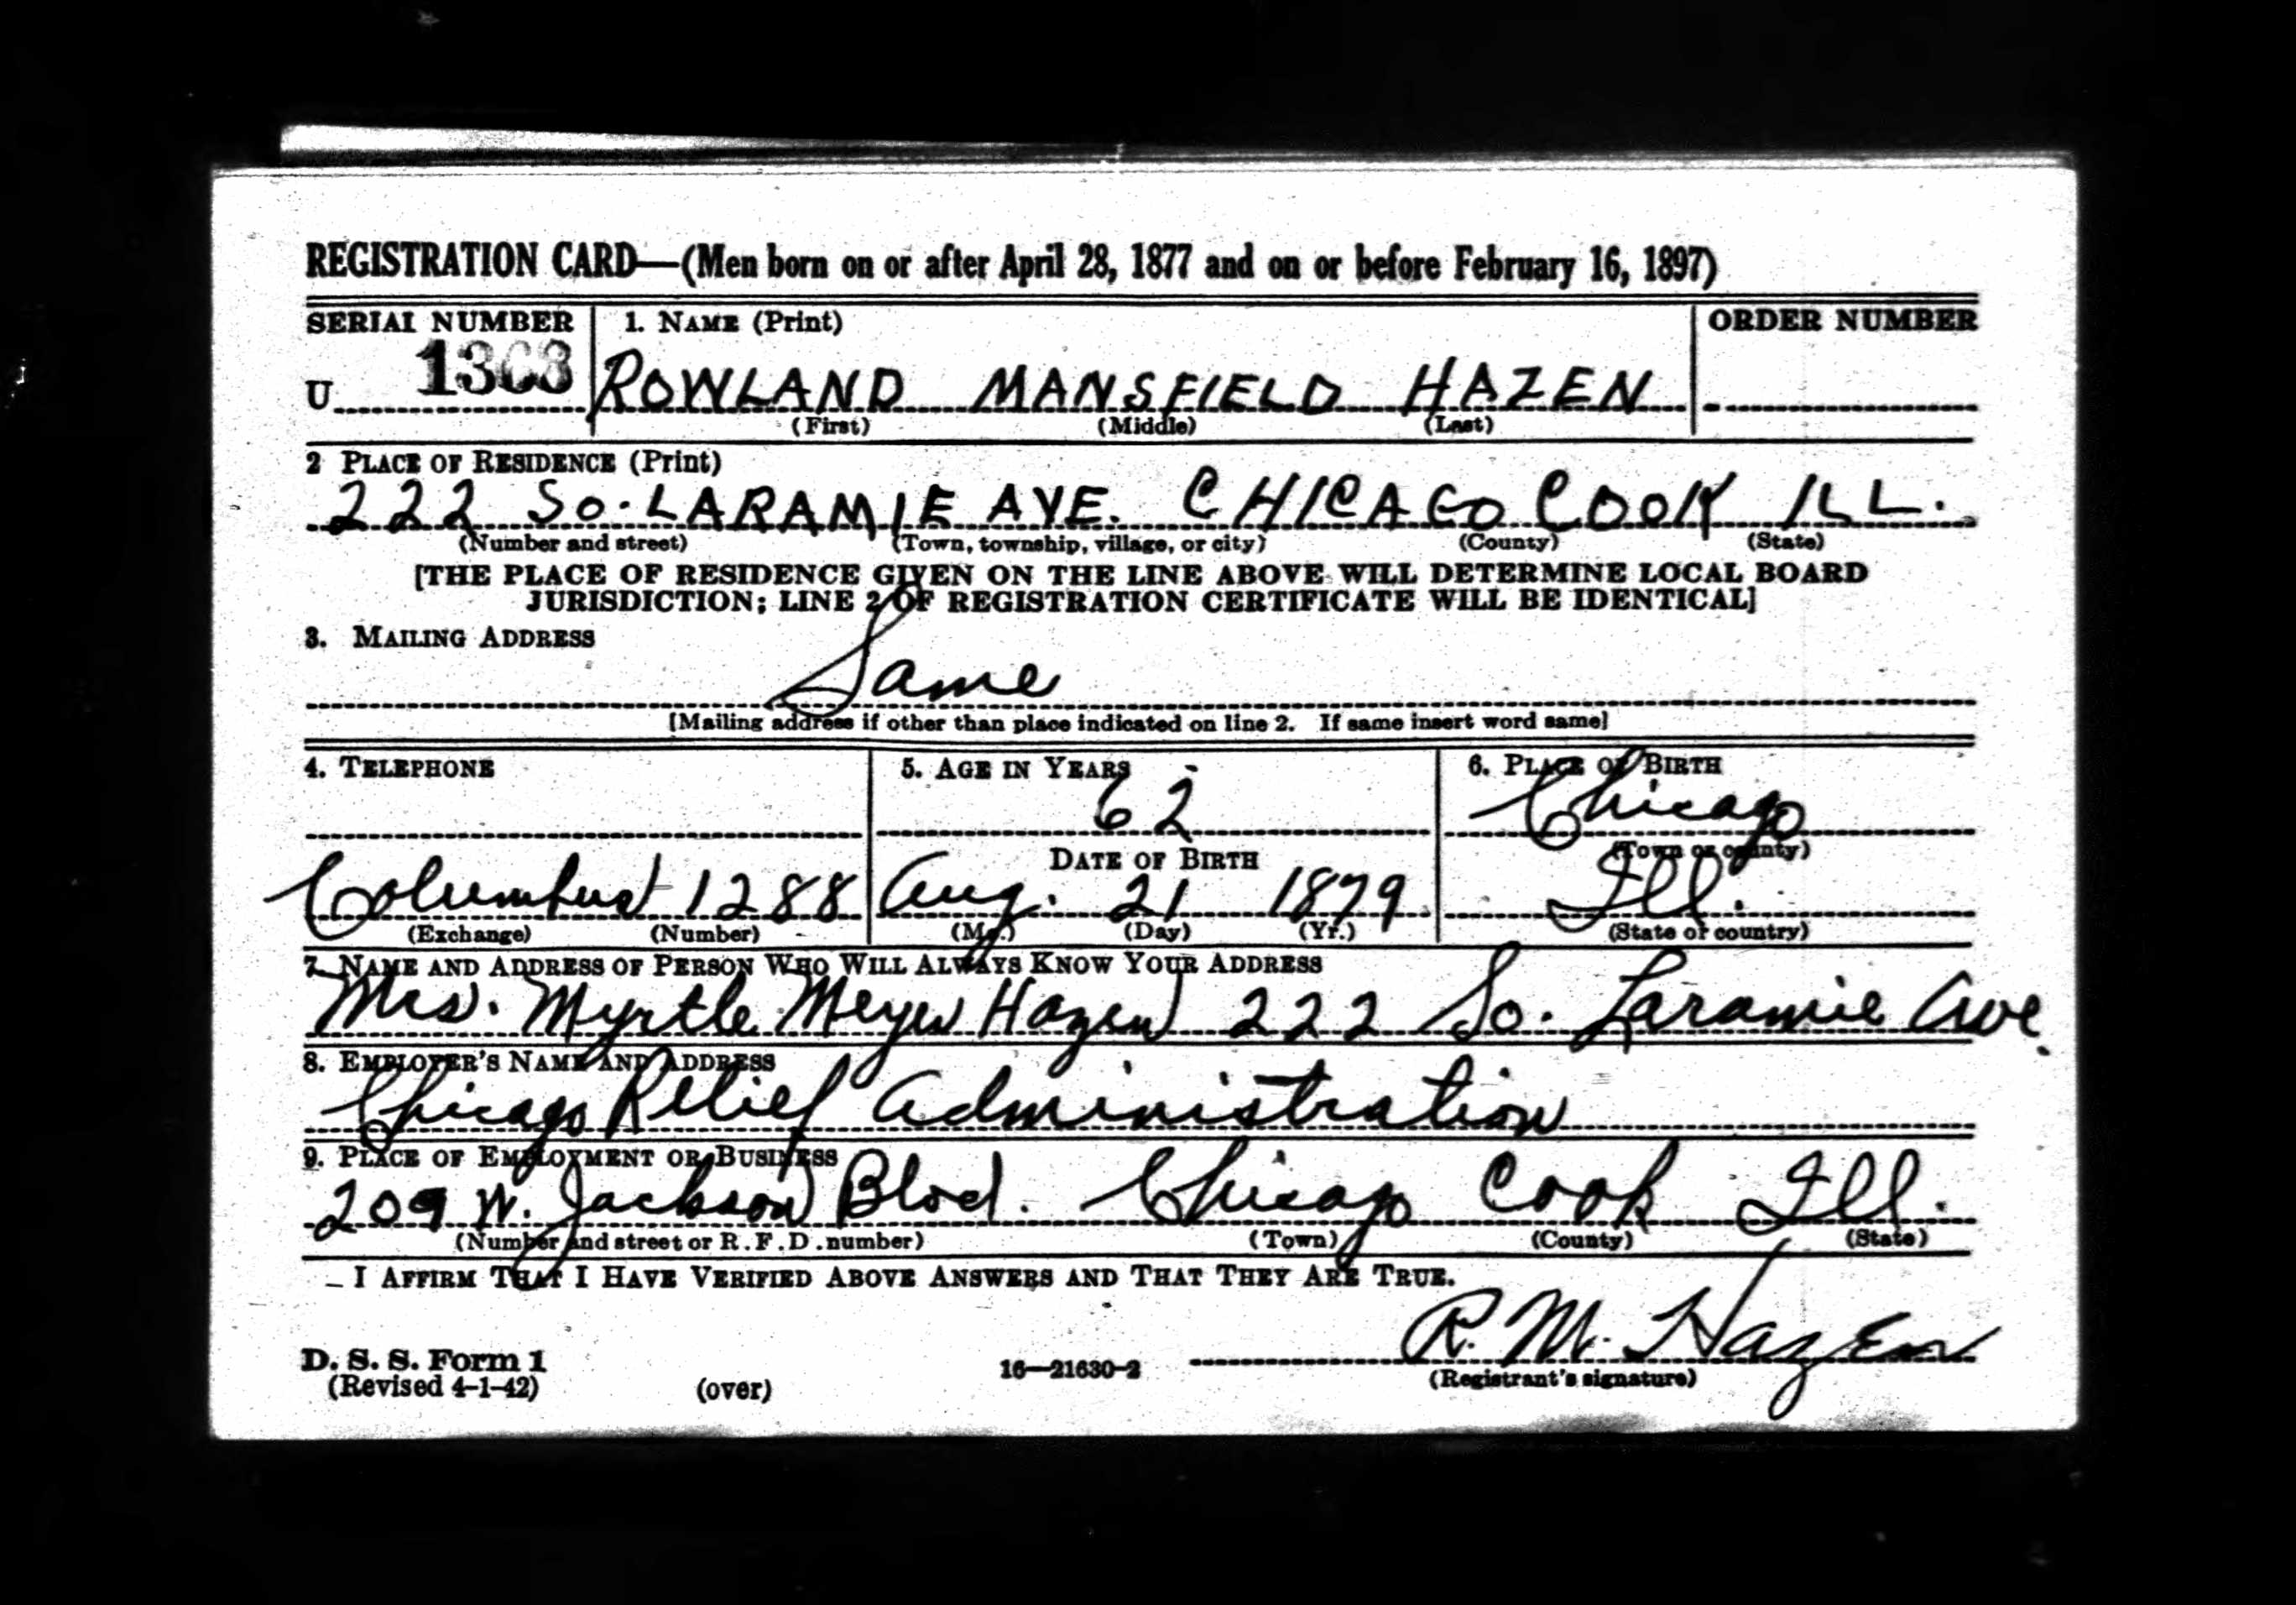 REGISTRATION CARD—(Men born on or after April 28, 1877 and on or before February 16, 1897)
SERIAL NUMBER 1. NAME (Print) ORDER NUMBER
U ROWLAND MANSFIELD HAZEN
(First) (Middle) (Last)
2 PLACE OF RESIDENCE (Print)
222 So. LARAMIE AVE. CHICAGO COOK ILL.
(Number and street) (Town, township, village, or city) (County) (State)
[THE PLACE OF RESIDENCE GIVEN ON THE LINE ABOVE WILL DETERMINE LOCAL BOARD
JURISDICTION; LINE 2 OF REGISTRATION CERTIFICATE WILL BE IDENTICAL]
3. MAILING ADDRESS
Same
[Mailing address if other than place indicated on line 2. If same insert word same]
4. TELEPHONE 5. AGE IN YEARS 6. PLACE OF BIRTH
62 Chicago
DATE OF BIRTH (Town or county)
Columbus 1288 Aug. 21 1879 Ill.
(Exchange) (Number) (Mo.) (Day) (Yr.) (State or country)
7. NAME AND ADDRESS OF PERSON WHO WILL ALWAYS KNOW YOUR ADDRESS
Mrs. Myrtle Meyer Hazen 222 So. Laramie Ave.
8. EMPLOYER'S NAME AND ADDRESS
Chicago Relief Administration
9. PLACE OF EMPLOYMENT OR BUSINESS
209 W. Jackson Blvd. Chicago Cook Ill.
(Number and street or R.F.D. number) (Town) (County) (State)
I AFFIRM THAT I HAVE VERIFIED ABOVE ANSWERS AND THAT THEY ARE TRUE.
R. M. Hazen
D. S. S. Form 1 16—21630-2
(Revised 4-1-42) (over) (Registrant's signature)